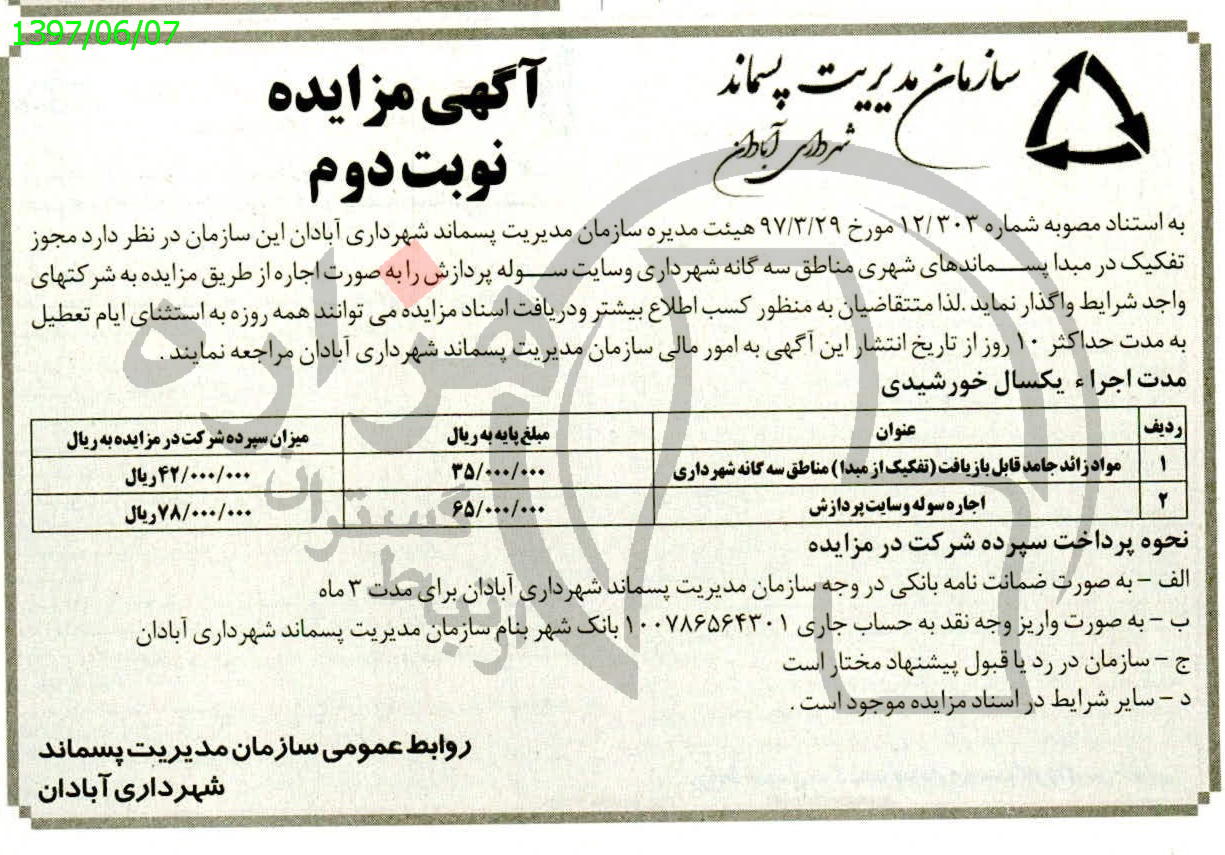 1397/06/07
سازمان مدیریت پسماند
شهرداری آبادان
آگهی مزایده
نوبت دوم
به استناد مصوبه شماره ۱۲/۳۰۳ مورخ ۹۷/۳/۲۹ هیئت مدیره سازمان مدیریت پسماند شهرداری آبادان این سازمان در نظر دارد مجوز
تفکیک در مبدا پسماندهای شهری مناطق سه گانه شهرداری وسایت سوله پردازش را به صورت اجاره از طریق مزایده به شرکتهای
واجد شرایط واگذار نماید .لذا متتقاضیان به منظور کسب اطلاع بیشتر ودریافت اسناد مزایده می توانند همه روزه به استثنای ایام تعطیل
به مدت حداکثر ۱۰ روز از تاریخ انتشار این آگهی به امور مالی سازمان مدیریت پسماند شهرداری آبادان مراجعه نمایند .
مدت اجراء یکسال خورشیدی
ردیف عنوان مبلغ پایه به ریال میزان سپرده شرکت در مزایده به ریال
۱ مواد زائد جامد قابل بازیافت (تفکیک از مبدا) مناطق سه گانه شهرداری ۳۵/۰۰۰/۰۰۰ ۴۲/۰۰۰/۰۰۰ ریال
۲ اجاره سوله وسایت پردازش ۶۵/۰۰۰/۰۰۰ ۷۸/۰۰۰/۰۰۰ ریال
نحوه پرداخت سپرده شرکت در مزایده
الف – به صورت ضمانت نامه بانکی در وجه سازمان مدیریت پسماند شهرداری آبادان برای مدت ۳ ماه
ب – به صورت واریز وجه نقد به حساب جاری ۱۰۰۷۸۶۵۶۴۳۰۱ بانک شهر بنام سازمان مدیریت پسماند شهرداری آبادان
ج – سازمان در رد یا قبول پیشنهاد مختار است
د – سایر شرایط در اسناد مزایده موجود است .
روابط عمومی سازمان مدیریت پسماند
شهرداری آبادان
هزاره
گستران